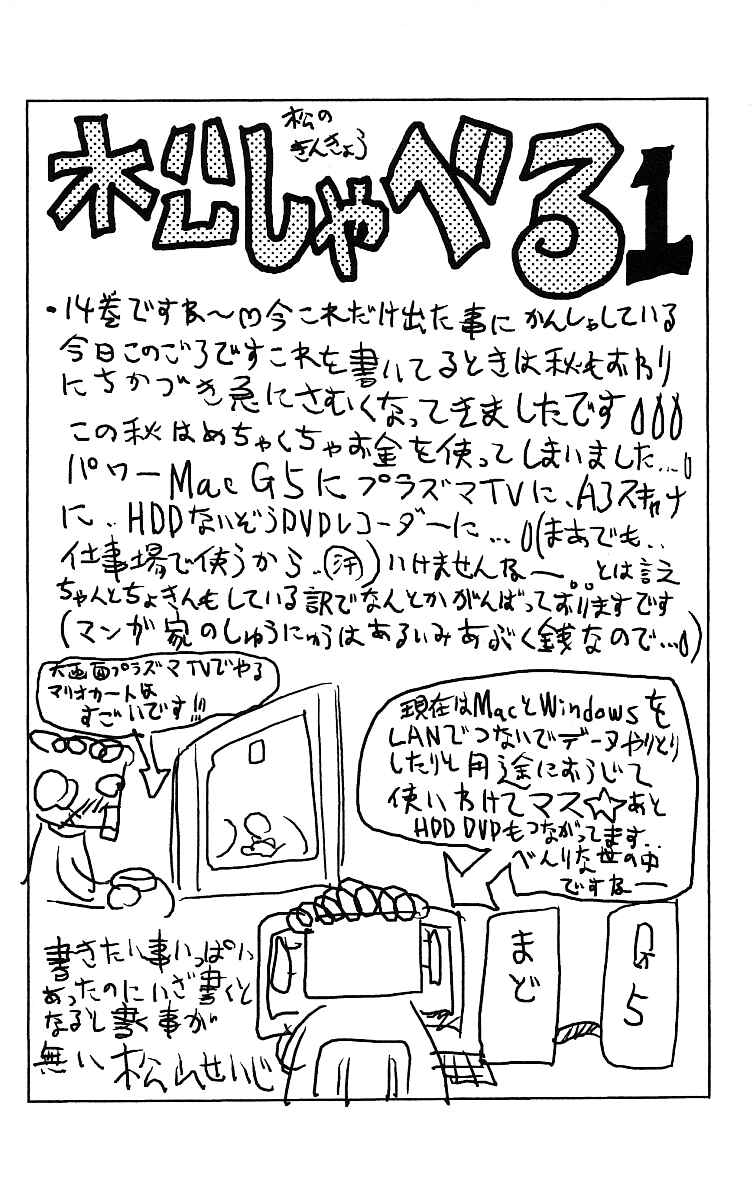 松のきんきょう
松しゃべる1
・14巻ですネ〜m今これだけ出た事にかんしゃしている
今日このごろですこれを書いてるときは秋もおわり
にちかづき急にさむくなってきましたです
この秋はめちゃくちゃお金を使ってしまいました…
パワーMac G5にプラズマTVに、A3スキャナ
に、HDDないぞうDVDレコーダーに…(まあでも、
仕事場で使うから、(汗))いけませんなー…とは言え
ちゃんとちょきんもしている訳でなんとかがんばっておりますです
(マンガ家のしゅうにゅうはあるいみあぶく銭なので…)
大画面プラズマTVでやる
マリオカートは
すごいです!!!
現在はMacとWindowsを
LANでつないでデータやりとり
したりと用途におうじて
使いわけてマス☆あと
HDD DVDもつながってます…
べんりな世の中
ですなー
まど
G5
書きたい事いっぱい
あったのにいざ書くと
なると書く事が
無い 松山せいじ